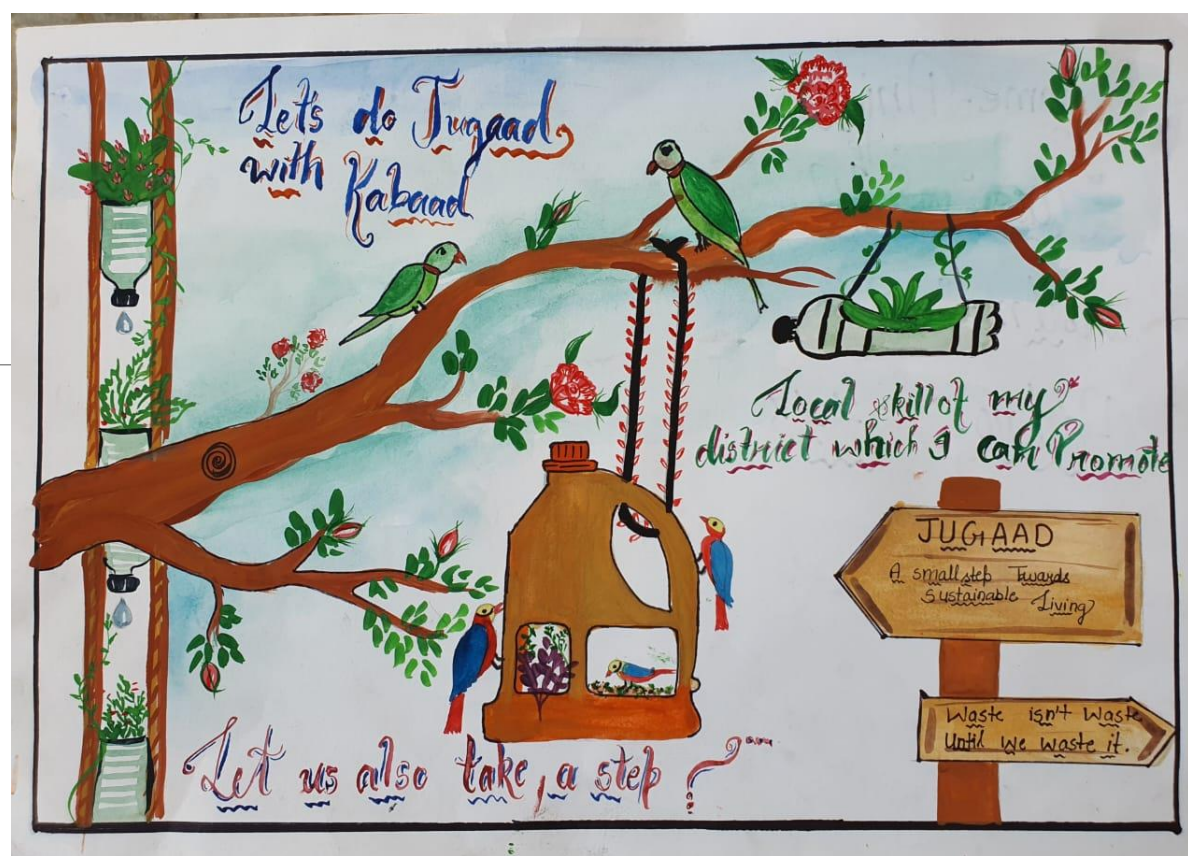 Let's do Jugaad
with Kabaad
Local skill of my
district which I can Promote
JUGAAD
A small step Twards
Sustainable Living
Waste isn't Waste
Until we waste it.
Let us also take, a step ?